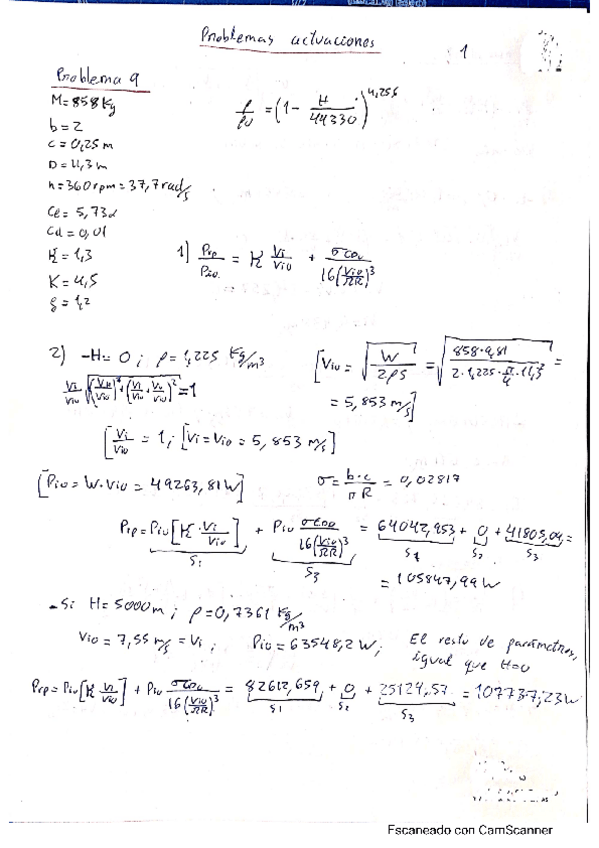 Problemas actuaciones
1
Problema 9
M=858Kg
b=2
c=0,25m
D=11,3m
n=360rpm=37,7rad/s
Cl=5,73α
Cd=0,01
K=1,3
K=4,5
ξ=1,2
ρ/ρ0 = (1 - H/44330)^4,256
1] Prp/Pio = K Vi/Vio + σCd0/16(Vio/ΩR)^3
2) -H=0; ρ=1,225 Kg/m3
[Vio = √(W/2ρS) = √(858·9,81/2·1,225·π/4·11,3²) =
= 5,853 m/s]
[Vi/Vio = 1; [Vi=Vio=5,853 m/s]
[Pio = W·Vio = 49263,81W]
σ = b·c/πR = 0,02817
Prp=Pio[K·Vi/Vio] + Pio σCd0/16(Vio/ΩR)^3 = 64042,953 + 0 + 41805,04 =
S1 S3 S1 S2 S3
= 105847,99W
- Si H=5000m; ρ=0,7361 Kg/m3
Vio = 7,55 m/s = Vi; Pio=63548,2W; El resto de parámetros, igual que H=0
Prp=Pio[K Vi/Vio] + Pio σCd0/16(Vio/ΩR)^3 = 82612,659 + 0 + 25124,57 = 107737,23W
S1 S2 S3
Escaneado con CamScanner